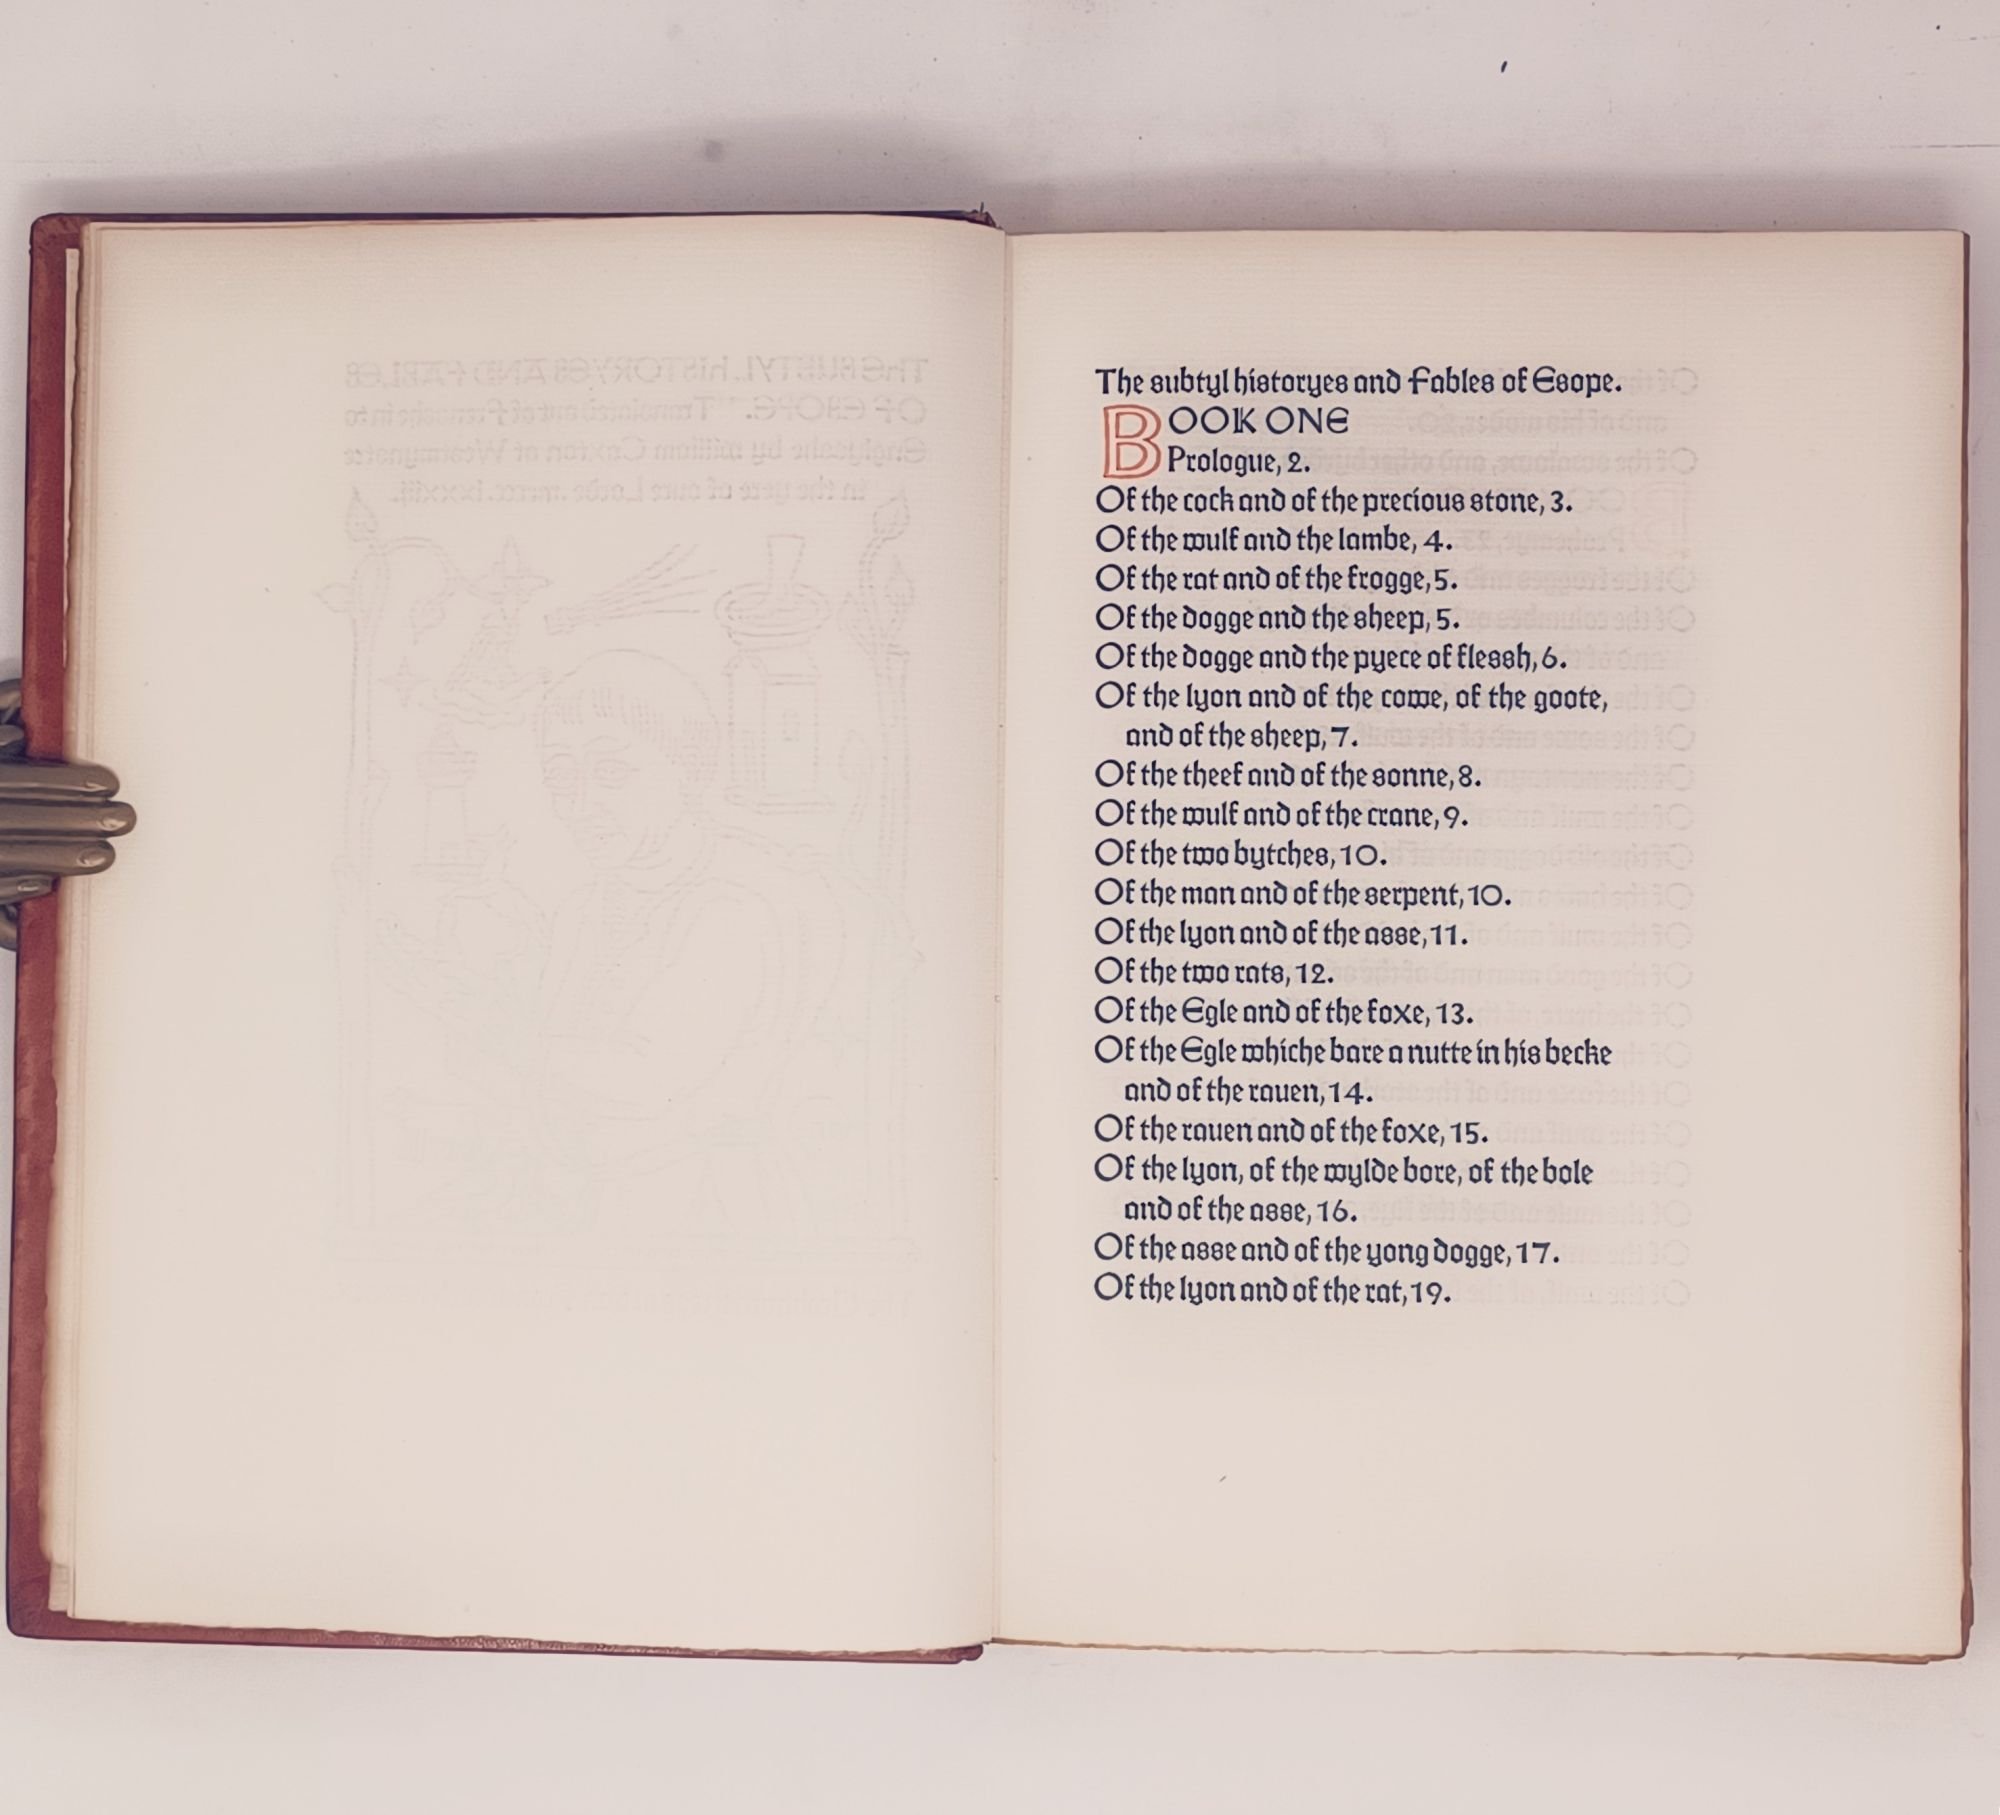 The subtyl historyes and Fables of Esope.
BOOK ONE
Prologue, 2.
Of the cock and of the precious stone, 3.
Of the wulf and the lambe, 4.
Of the rat and of the frogge, 5.
Of the dogge and the sheep, 5.
Of the dogge and the pyece of flessh, 6.
Of the lyon and of the cowe, of the goote,
and of the sheep, 7.
Of the theef and of the sonne, 8.
Of the wulf and of the crane, 9.
Of the two bytches, 10.
Of the man and of the serpent, 10.
Of the lyon and of the asse, 11.
Of the two rats, 12.
Of the Egle and of the foxe, 13.
Of the Egle whiche bare a nutte in his becke
and of the rauen, 14.
Of the rauen and of the foxe, 15.
Of the lyon, of the wylde bore, of the bole
and of the asse, 16.
Of the asse and of the yong dogge, 17.
Of the lyon and of the rat, 19.